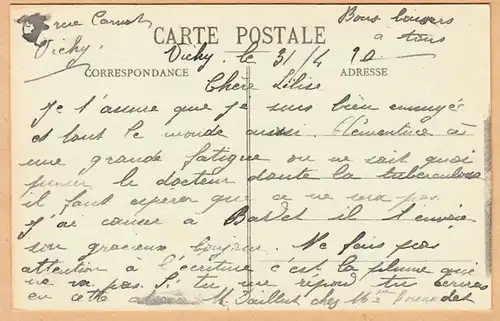 rue Carnot
Vichy.
CARTE POSTALE
Bons baisers
à tous
Vichy. le 31/4
CORRESPONDANCE
ADRESSE
Chere Lélise
Je t'assure que je suis bien ennuyée
et tout le monde aussi. Clémentine a
une grande fatigue on ne sait quoi
penser le docteur doute la tuberculose
il faut esperer que ce ne sera pas.
J'ai causer a il t'envoie
son gracieux bonjour. Ne fais pas
attention à l'écriture c'est la plume qui
ne va pas. Si tu me répond tu écriras
en cette Vaillant chez Mme